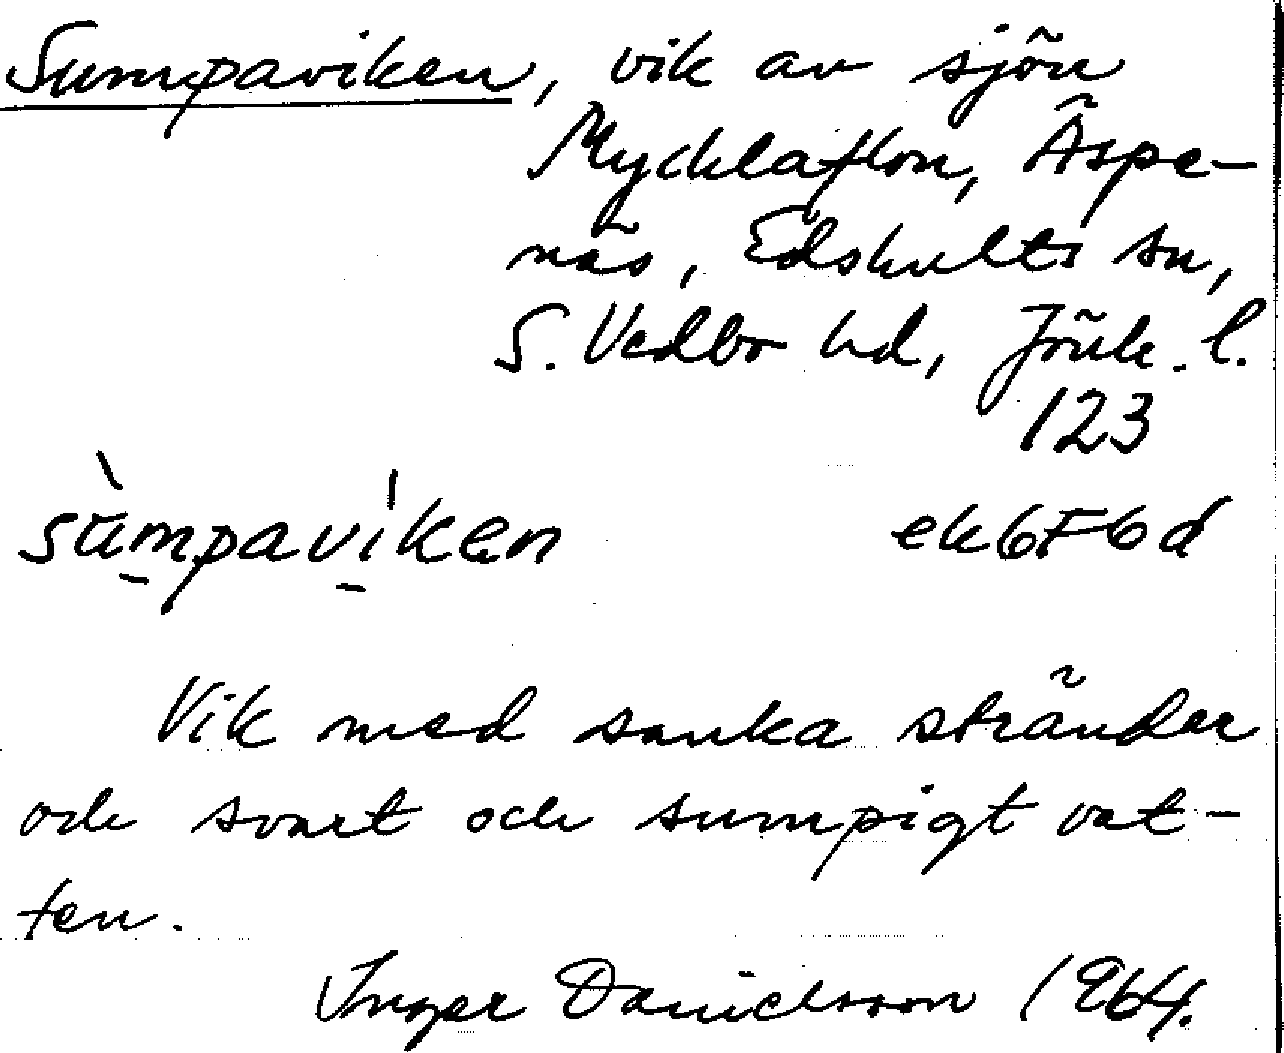 Sumpaviken, vik av sjön
Mycklaflon, Äspe-
näs, Edshults sn,
S. Vedbo hd, Jönk. l.
123
sùmpavíken ek6F6d
Vik med sanka stränder
och svart och sumpigt vat-
ten.
Inger Danielsson 1964.